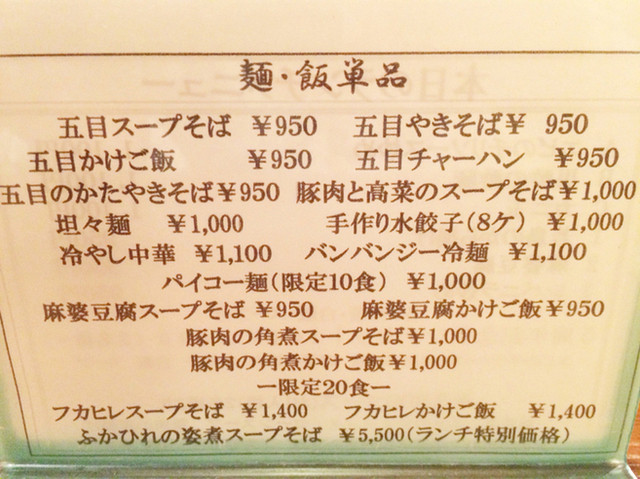 麺・飯単品
五目スープそば ￥950 五目やきそば￥ 950
五目かけご飯 ￥950 五目チャーハン ￥950
五目のかたやきそば￥950 豚肉と高菜のスープそば￥1,000
坦々麺 ￥1,000 手作り水餃子(8ケ) ￥1,000
冷やし中華 ￥1,100 バンバンジー冷麺 ￥1,100
パイコー麺(限定10食) ￥1,000
麻婆豆腐スープそば ￥950 麻婆豆腐かけご飯￥950
豚肉の角煮スープそば￥1,000
豚肉の角煮かけご飯￥1,000
ー限定20食ー
フカヒレスープそば ￥1,400 フカヒレかけご飯 ￥1,400
ふかひれの姿煮スープそば ￥5,500(ランチ特別価格)